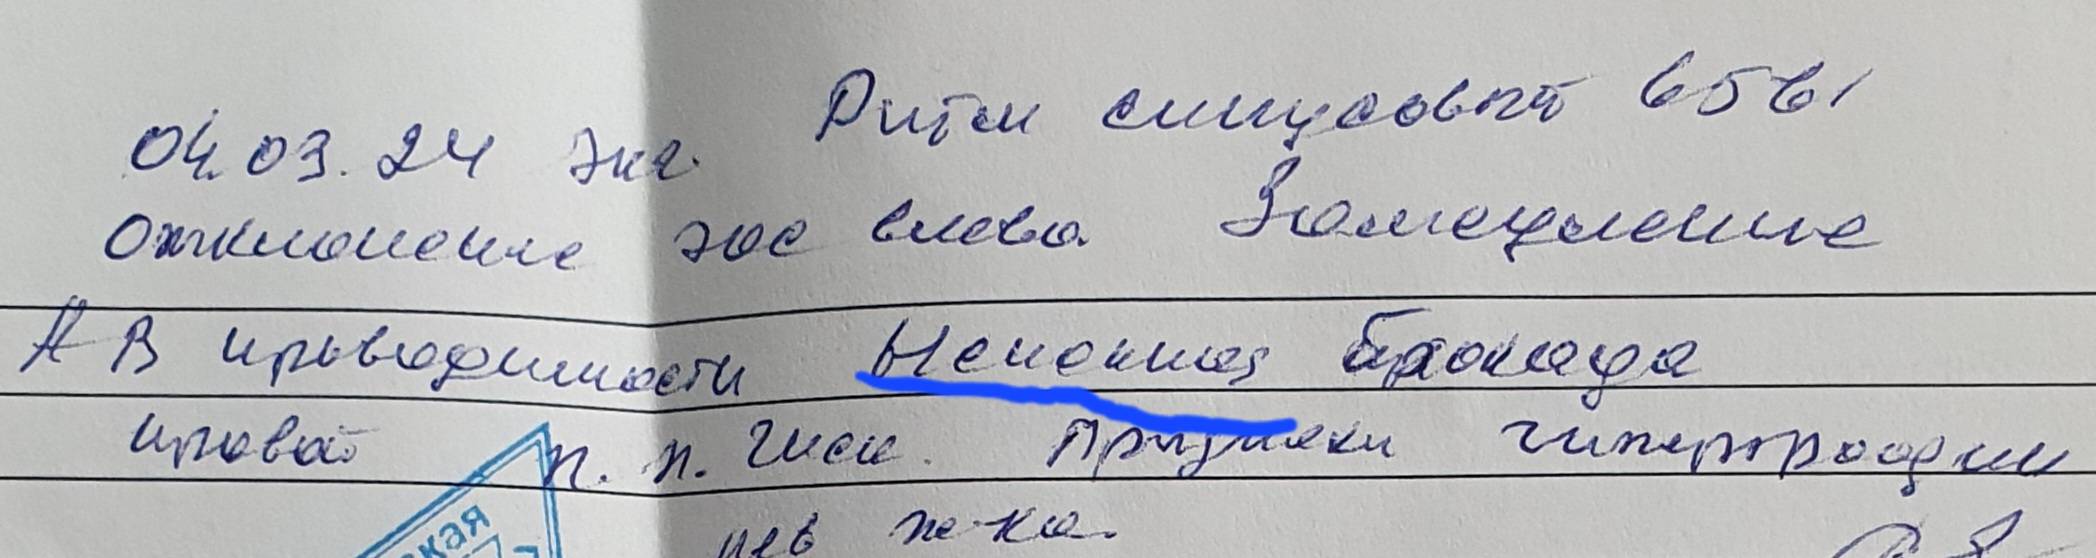 04.03.24 Экг. Ритм синусовый 65 в 1
Отклонение эос влево. Замедление
АВ проводимости Неполная блокада
правой п. п. Гиса. Признаки гипертрофии
лев ж-ка.
ская